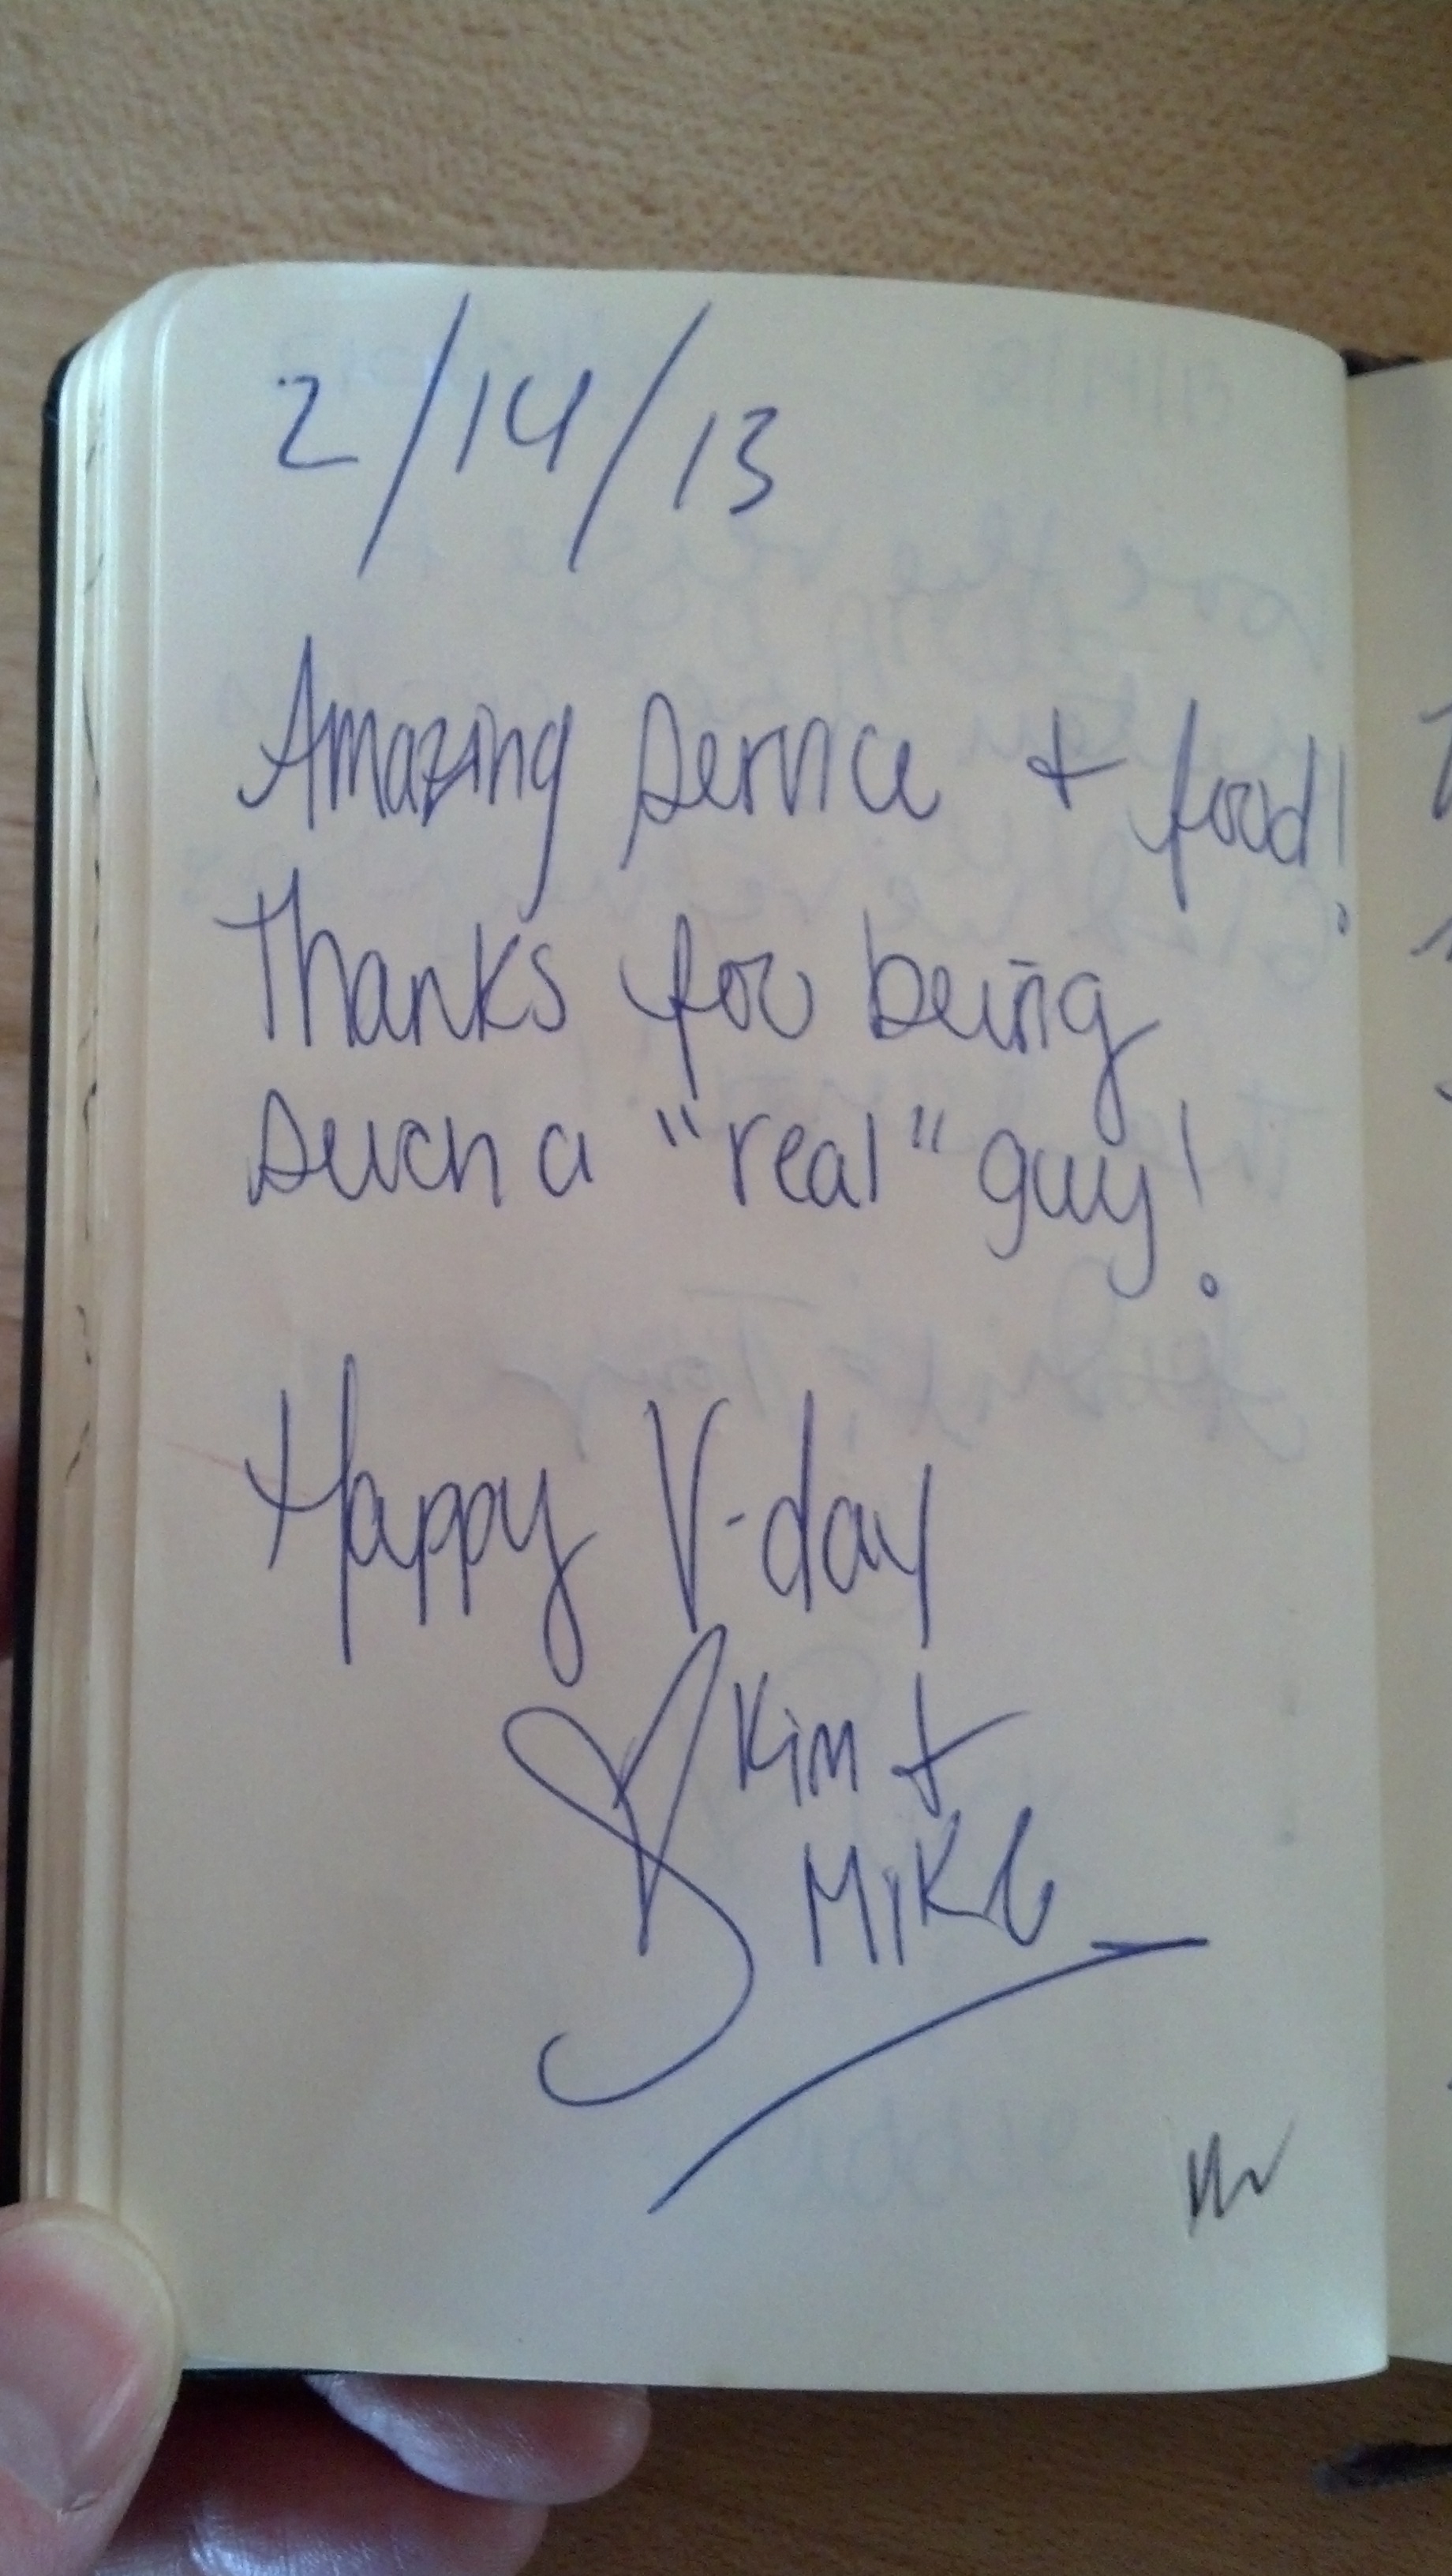 2/14/13
Amazing service + food!
Thanks for being
such a "real" guy!
Happy V-day
Kim +
Mike